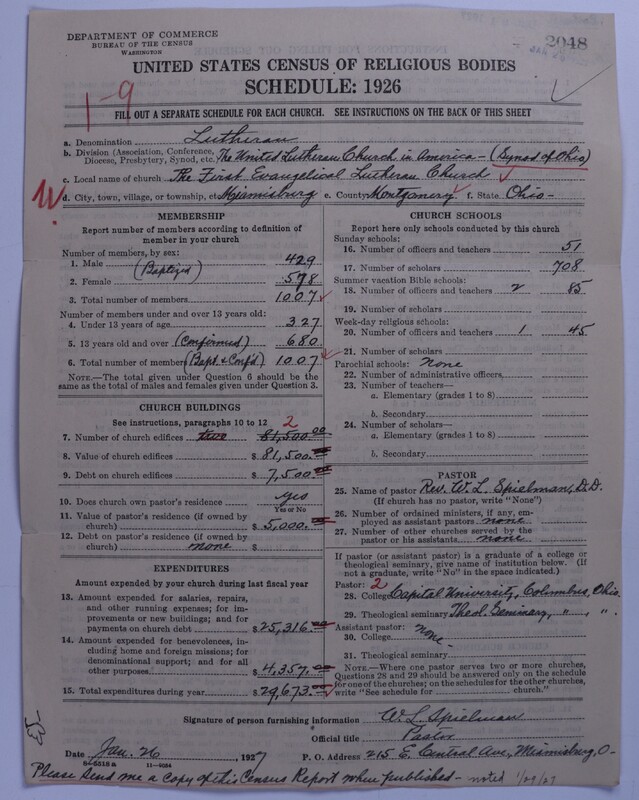 DEPARTMENT OF COMMERCE
BUREAU OF THE CENSUS
WASHINGTON
2048
UNITED STATES CENSUS OF RELIGIOUS BODIES
SCHEDULE: 1926
1-9
FILL OUT A SEPARATE SCHEDULE FOR EACH CHURCH. SEE INSTRUCTIONS ON THE BACK OF THIS SHEET
a. Denomination Lutheran
b. Division (Association, Conference, Diocese, Presbytery, Synod, etc. The United Lutheran Church in America - (Synod of Ohio)
c. Local name of church The First Evangelical Lutheran Church
d. City, town, village, or township, etc Miamisburg e. County Montgomery f. State Ohio-
MEMBERSHIP
Report number of members according to definition of member in your church
Number of members, by sex:
1. Male (Baptized) 429
2. Female 578
3. Total number of members 1007
Number of members under and over 13 years old:
4. Under 13 years of age 327
5. 13 years old and over (Confirmed) 680
6. Total number of members (Bapt. & Conf'd) 1007
NOTE.—The total given under Question 6 should be the same as the total of males and females given under Question 3.
CHURCH BUILDINGS
See instructions, paragraphs 10 to 12
7. Number of church edifices two 2 81,500.00
8. Value of church edifices $ 81,500.00
9. Debt on church edifices $ 7,500.00
10. Does church own pastor's residence Yes
Yes or No
11. Value of pastor's residence (if owned by church) $ 5,000.00
12. Debt on pastor's residence (if owned by church) none $
EXPENDITURES
Amount expended by your church during last fiscal year
13. Amount expended for salaries, repairs, and other running expenses; for improvements or new buildings; and for payments on church debt $ 25,316.00
14. Amount expended for benevolences, including home and foreign missions; for denominational support; and for all other purposes $ 4,357.00
15. Total expenditures during year $ 29,673.00
CHURCH SCHOOLS
Report here only schools conducted by this church
Sunday schools:
16. Number of officers and teachers 51
17. Number of scholars 708
Summer vacation Bible schools:
18. Number of officers and teachers 2 85
19. Number of scholars
Week-day religious schools:
20. Number of officers and teachers 1 45
21. Number of scholars
Parochial schools: None
22. Number of administrative officers
23. Number of teachers—
a. Elementary (grades 1 to 8)
b. Secondary
24. Number of scholars—
a. Elementary (grades 1 to 8)
b. Secondary
PASTOR
25. Name of pastor Rev. W. L. Spielman, D.D.
(If church has no pastor, write "None")
26. Number of ordained ministers, if any, employed as assistant pastors none
27. Number of other churches served by the pastor or his assistants none
If pastor (or assistant pastor) is a graduate of a college or theological seminary, give name of institution below. (If not a graduate, write "No" in the space indicated.)
Pastor: 2
28. College Capital University, Columbus, Ohio.
29. Theological seminary Theol. Seminary, " " .
Assistant pastor: none-
30. College
31. Theological seminary
NOTE.—Where one pastor serves two or more churches, Questions 28 and 29 should be answered only on the schedule for one of the churches; on the schedules for the other churches, write "See schedule for church."
Signature of person furnishing information W. L. Spielman
Official title Pastor
Date Jan. 26, 1927 P. O. Address 215 E. Central Ave, Miamisburg, O-
11—9084
Please send me a copy of this Census Report when published - noted 1/29/27